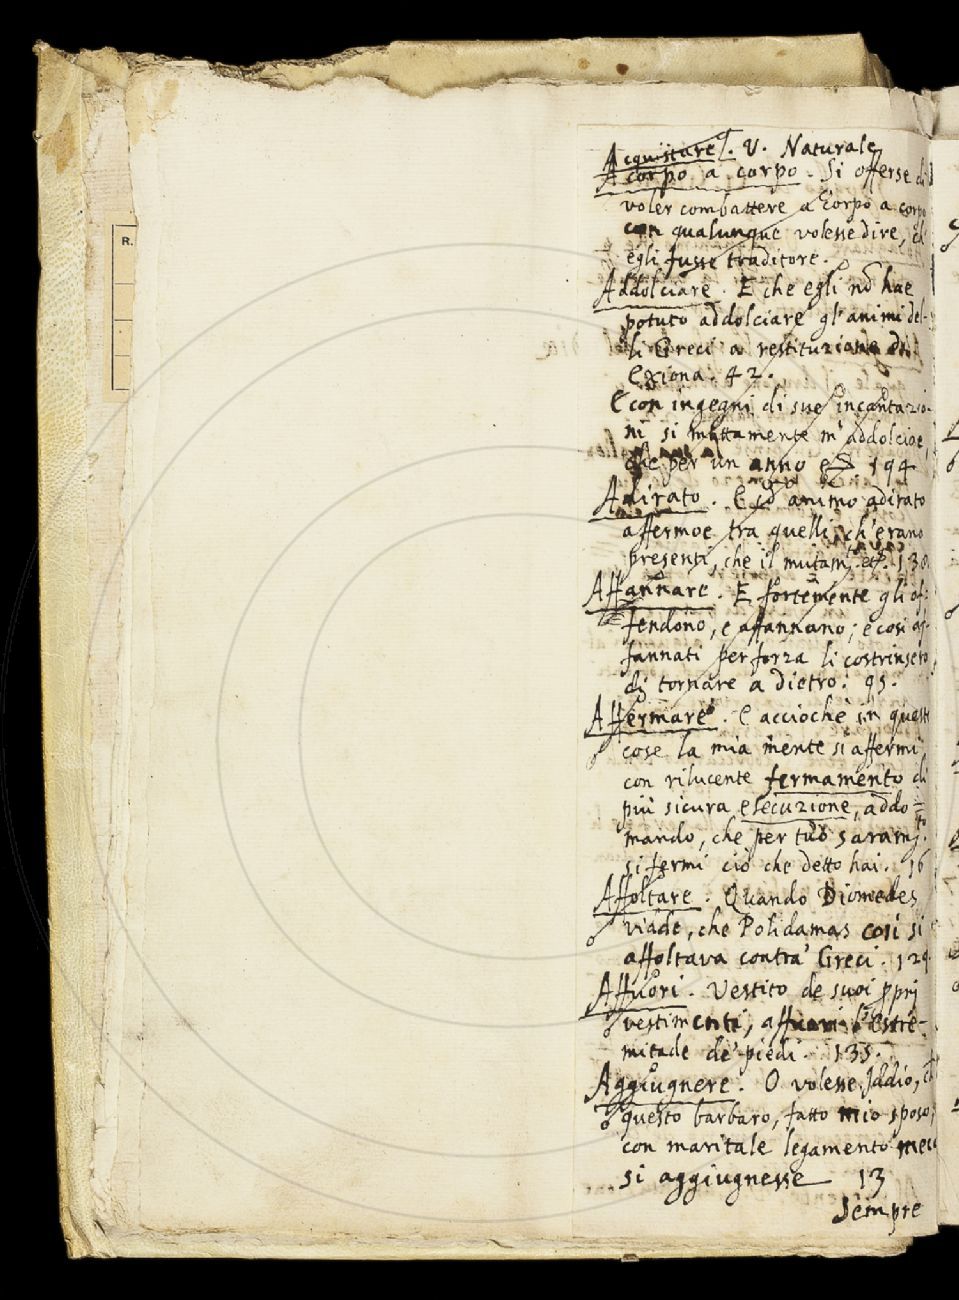 R.
Acquistare. V. Naturale
A corpo a corpo. Si offerse di
voler combattere a corpo a corpo
con qualunque volesse dire, ch'
egli fusse traditore.
Addolciare. E che egli nō hae
potuto addolciare gl'animi del-
li Greci a restituzione di
Exiona. 42.
E con ingegni di sue incantazio-
ni si mattamente m'addolcioe,
che per un anno 194
Adirato. E cō animo adirato
affermoe tra quelli, ch'erano
presenti, che il mutam.to etc. 130.
Affannare. E fortemente gli of-
fendono, e affannano; e così af-
fannati per forza li costrinsero
di tornare a dietro. 95.
Affermare. E acciochè in queste
cose la mia mente si affermi
con rilucente fermamento di
più sicura esecuzione, addo-
mando, che per tuo saram.to
si fermi ciò che detto hai. 16
Affoltare. Quando Diomedes
vidde, che Polidamas così si
affoltava contra' Greci. 129
Affuori. Vestito de suoi pprj
vestimenti, affuori l'estre-
mitade de' piedi. 135.
Aggiugnere. O volesse Iddio, ch'
questo barbaro, fatto mio sposo,
con maritale legamento meco
si aggiugnesse 13
Sempre